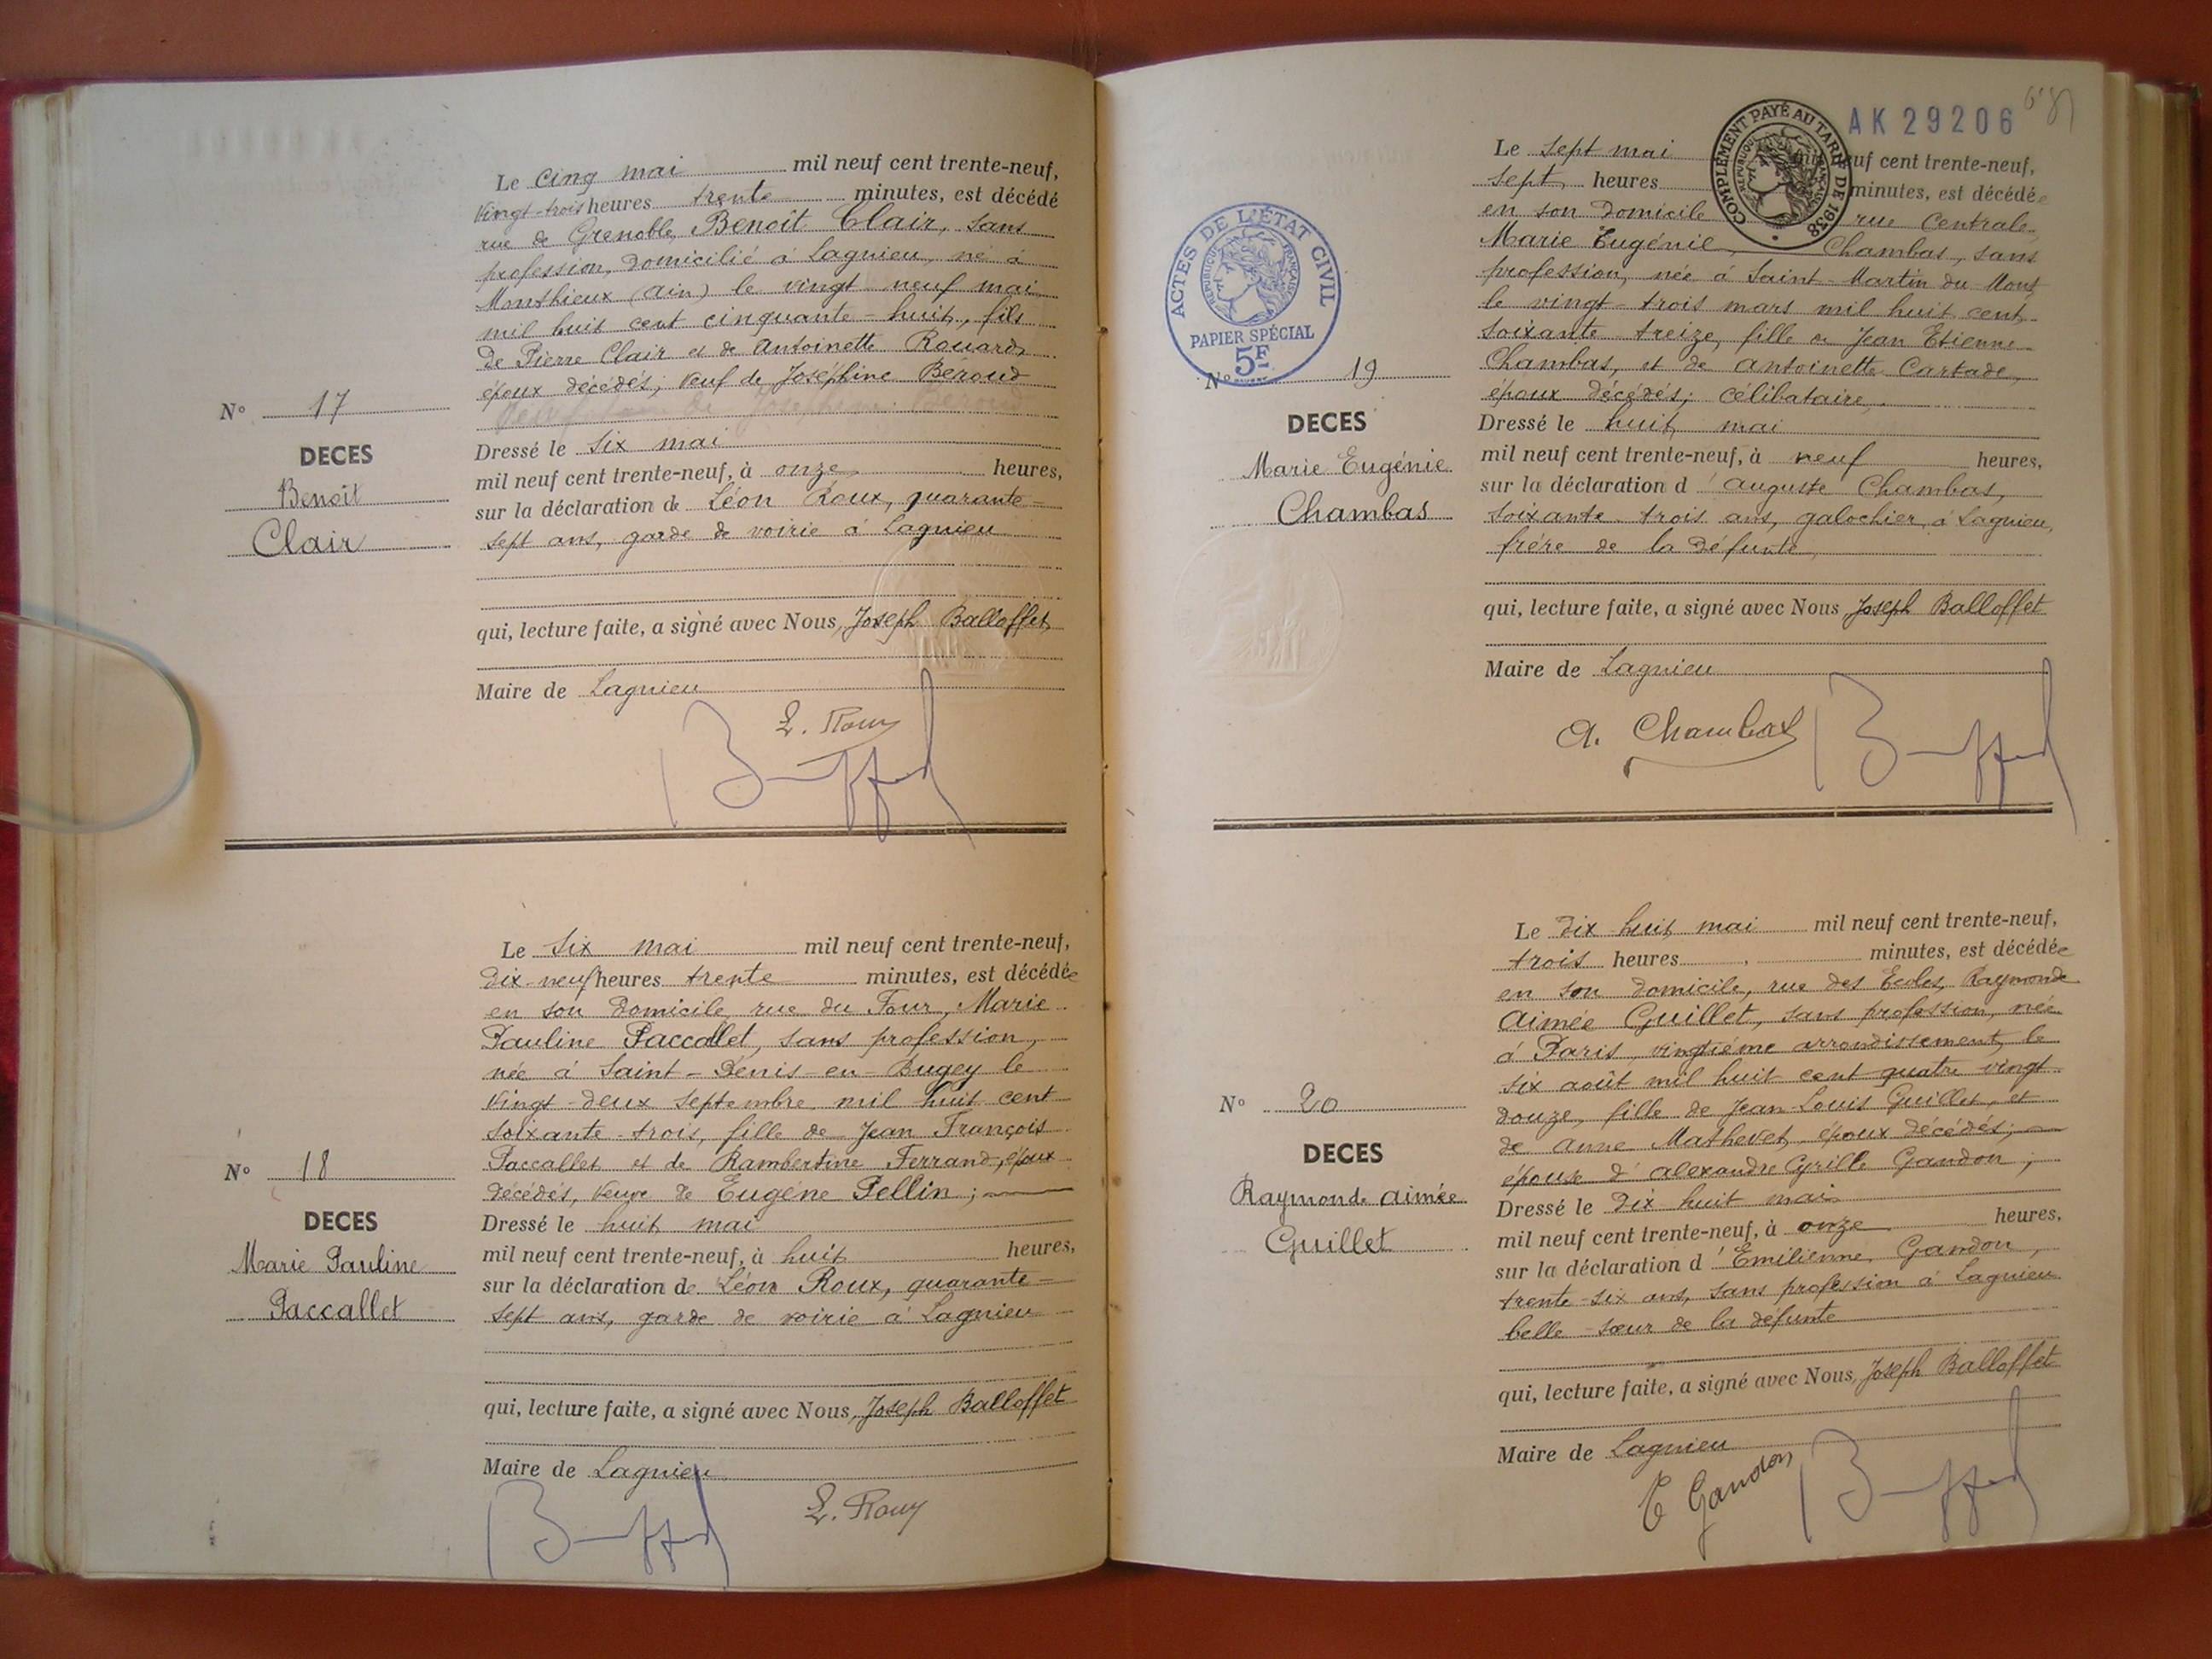 Le cinq mai mil neuf cent trente-neuf,
vingt-trois heures trente minutes, est décédé
rue de Grenoble, Benoît Clair, sans
profession, domicilié à Lagnieu, né à
Monthieux (Ain) le vingt neuf mai
mil huit cent cinquante-huit, fils
de Pierre Clair et de Antoinette Rouard,
époux décédés; veuf de Joséphine Beroud
N° 17
DECES
Benoît
Clair
Dressé le six mai
mil neuf cent trente-neuf, à onze heures,
sur la déclaration de Léon Roux, quarante-
sept ans, garde de voirie à Lagnieu
qui, lecture faite, a signé avec Nous, Joseph Balloffet,
Maire de Lagnieu
L. Roux
Le six mai mil neuf cent trente-neuf,
dix-neuf heures trente minutes, est décédée
en son domicile, rue du Four, Marie
Pauline Paccallet, sans profession,
née à Saint-Denis-en-Bugey le
vingt-deux septembre mil huit cent
soixante-trois, fille de Jean François
Paccallet et de Rambertine Ferrand, époux
décédés, veuve de Eugène Pellin;
N° 18
DECES
Marie Pauline
Paccallet
Dressé le huit mai
mil neuf cent trente-neuf, à huit heures,
sur la déclaration de Léon Roux, quarante-
sept ans, garde de voirie à Lagnieu
qui, lecture faite, a signé avec Nous, Joseph Balloffet
Maire de Lagnieu
L. Roux
AK 29206
COMPLÉMENT PAYÉ AU TARIF DE 1938
RÉPUBLIQUE FRANÇAISE
ACTES DE L'ÉTAT CIVIL
RÉPUBLIQUE FRANÇAISE
PAPIER SPÉCIAL
5F
Le sept mai neuf cent trente-neuf,
sept heures minutes, est décédée
en son domicile rue Centrale,
Marie Eugénie Chambas, sans
profession, née à Saint-Martin du Mont
le vingt-trois mars mil huit cent-
soixante-treize, fille de Jean Etienne
Chambas, et de Antoinette Cartade,
époux décédés; célibataire,
N° 19
DECES
Marie Eugénie
Chambas
Dressé le huit mai
mil neuf cent trente-neuf, à neuf heures,
sur la déclaration d'Auguste Chambas,
soixante-trois ans, galochier, à Lagnieu,
frère de la défunte,
qui, lecture faite, a signé avec Nous Joseph Balloffet
Maire de Lagnieu
A. Chambas
Le dix huit mai mil neuf cent trente-neuf,
trois heures minutes, est décédée
en son domicile, rue des Ecoles, Raymonde
Aimée Guillet, sans profession, née
à Paris, vingtième arrondissement, le
six août mil huit cent quatre vingt
douze, fille de Jean-Louis Guillet, et
de Anne Mathevet, époux décédés;
épouse d'Alexandre Cyrille Gandon;
N° 20
DECES
Raymonde Aimée
Guillet
Dressé le dix huit mai
mil neuf cent trente-neuf, à onze heures,
sur la déclaration d'Emilienne Gandon,
trente-six ans, sans profession à Lagnieu
belle-sœur de la défunte
qui, lecture faite, a signé avec Nous, Joseph Balloffet
Maire de Lagnieu
E Gandon